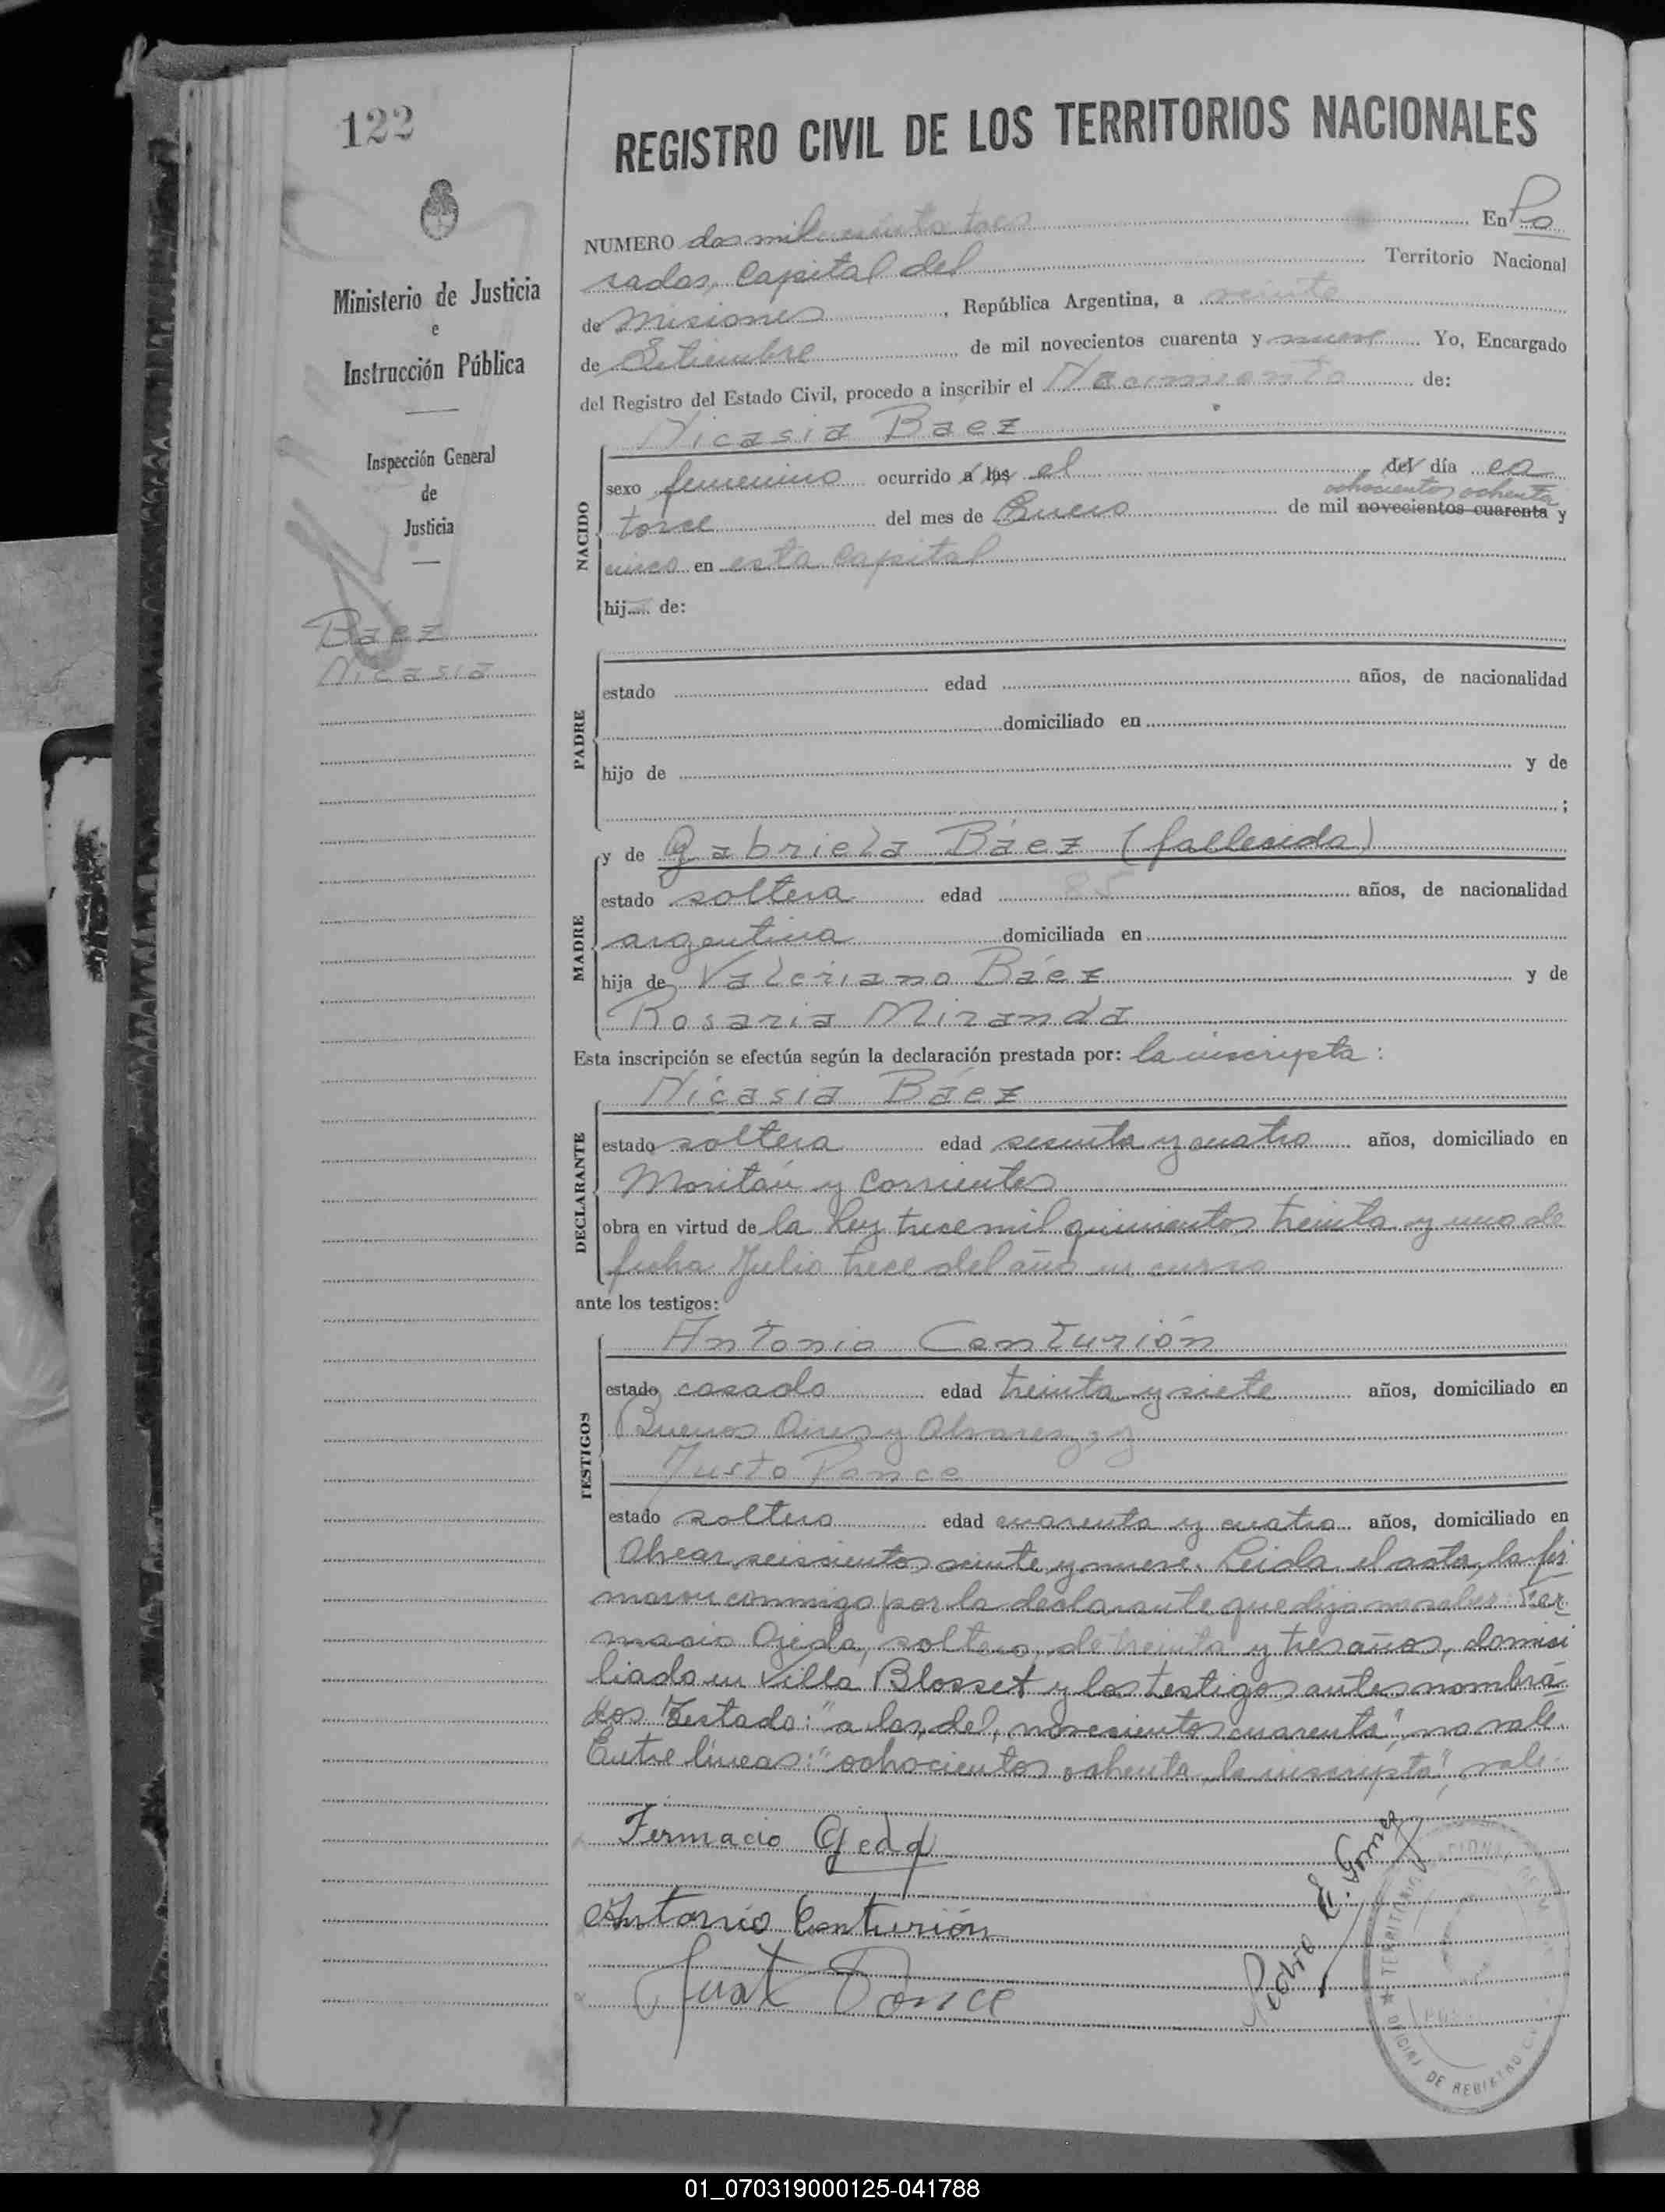 122
Ministerio de Justicia
e
Instrucción Pública
Inspección General
de
Justicia
Baez
Nicasia
REGISTRO CIVIL DE LOS TERRITORIOS NACIONALES
NUMERO dos mil ciento tres En Po
sadas, Capital del Territorio Nacional
de Misiones, República Argentina, a veinte
de Setiembre de mil novecientos cuarenta y nueve Yo, Encargado
del Registro del Estado Civil, procedo a inscribir el Nacimiento de:
NACIDO
Nicasia Baez
sexo femenino ocurrido a las el del día ca
ochocientos ochenta
torce del mes de Enero de mil novecientos cuarenta y
cinco en esta Capital
hij de:
PADRE
estado edad años, de nacionalidad
domiciliado en
hijo de y de
;
MADRE
y de Gabriela Báez (fallecida)
estado soltera edad años, de nacionalidad
argentina domiciliada en
hija de Valeriano Báez y de
Rosaria Miranda
Esta inscripción se efectúa según la declaración prestada por: la inscripta:
DECLARANTE
Nicasia Báez
estado soltera edad sesenta y cuatro años, domiciliado en
Moritán y Corrientes
obra en virtud de la Ley trece mil quinientos treinta y uno de
fecha Julio trece del año en curso
ante los testigos:
TESTIGOS
Antonio Centurión
estado casado edad treinta y siete años, domiciliado en
Buenos Aires y Alvarez y
Justo Ponce
estado soltero edad cuarenta y cuatro años, domiciliado en
Alvear seiscientos veinte y nueve. Leida el acta, la fir
maron conmigo por la declarante que dijo no saber: Fer
macio Ojeda, soltero, de treinta y tres años, domici
liado en Villa Blosset y los testigos antes nombra
dos Testado: "a las, del, novecientos cuarenta", no vale.
Entre líneas: "ochocientos ochenta, la inscripta", vale.
Fermacio Ojeda
Antonio Centurión
Justo Ponce
Pedro E. Gomez
OFICINA DE REGISTRO
01_070319000125-041788